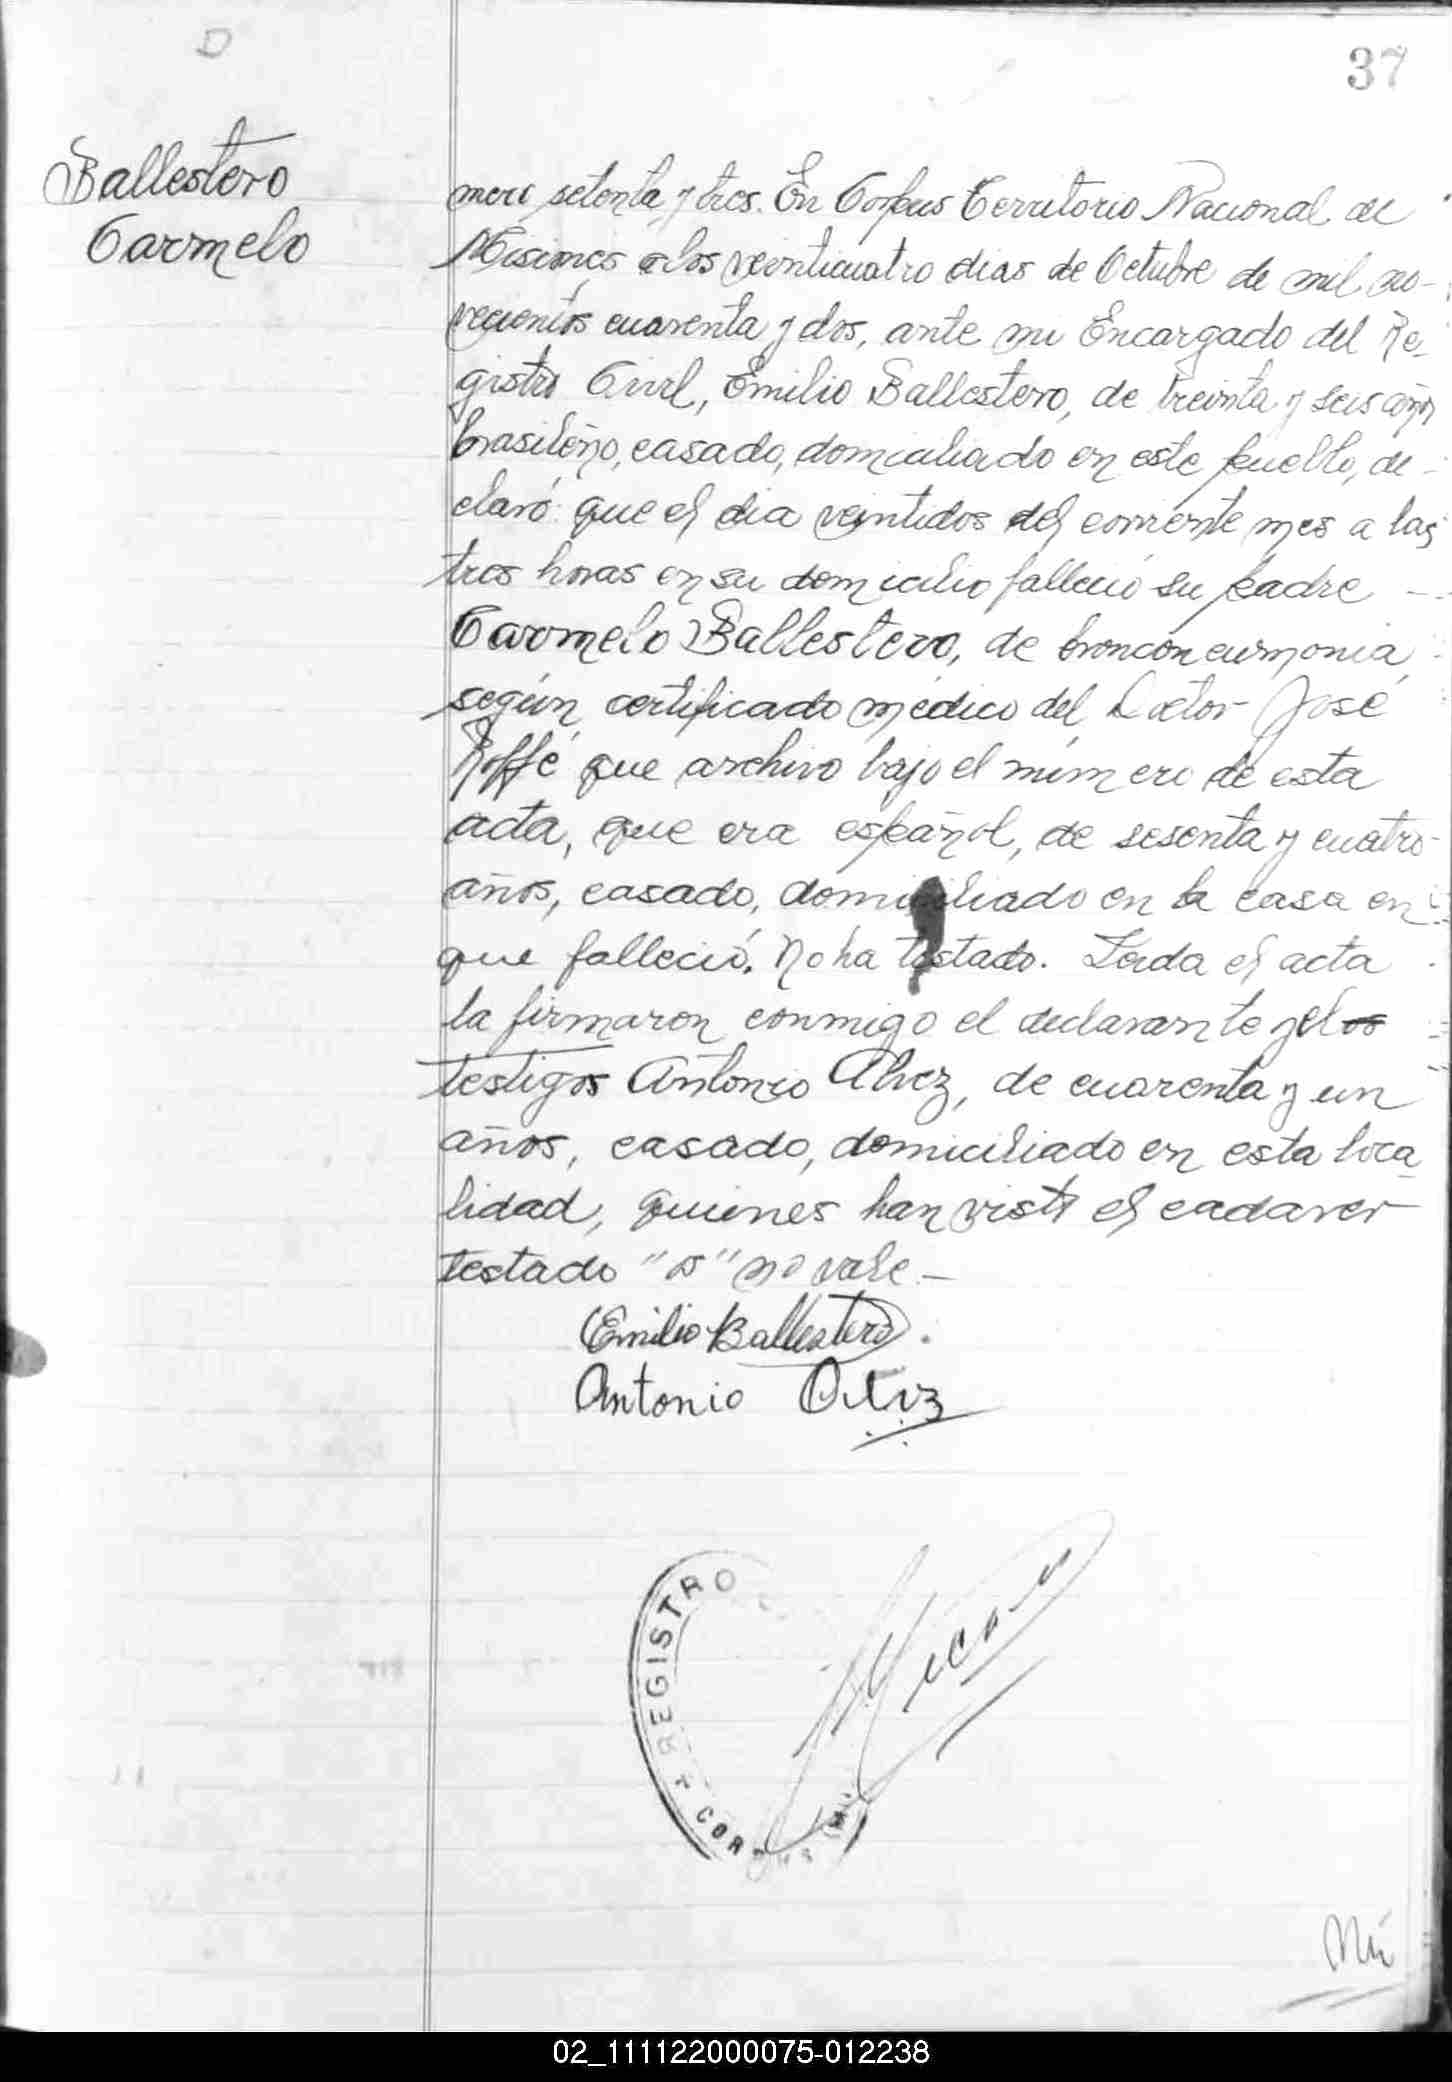 D
37
Ballestero
Carmelo
mero setenta y tres. En Corpus Territorio Nacional de
Misiones a los veinticuatro dias de Octubre de mil no-
vecientos cuarenta y dos, ante mi Encargado del Re-
gistro Civil, Emilio Ballestero, de treinta y seis años
brasileño, casado, domiciliado en este pueblo, de-
claró: que el dia veintidos del corriente mes a las
tres horas en su domicilio falleció su padre
Carmelo Ballestero, de bronconeumonia
según certificado médico del Doctor José
Roffé que archivo bajo el número de esta
acta, que era español, de sesenta y cuatro
años, casado, domiciliado en la casa en
que falleció. No ha testado. Leida el acta
la firmaron conmigo el declarante y el os
testigos Antonio Alvez, de cuarenta y un
años, casado, domiciliado en esta loca
lidad, quienes han visto el cadaver
testado "os" no vale.-
Emilio Ballestero.
Antonio
REGISTRO
CORPUS (M
02_111122000075-012238